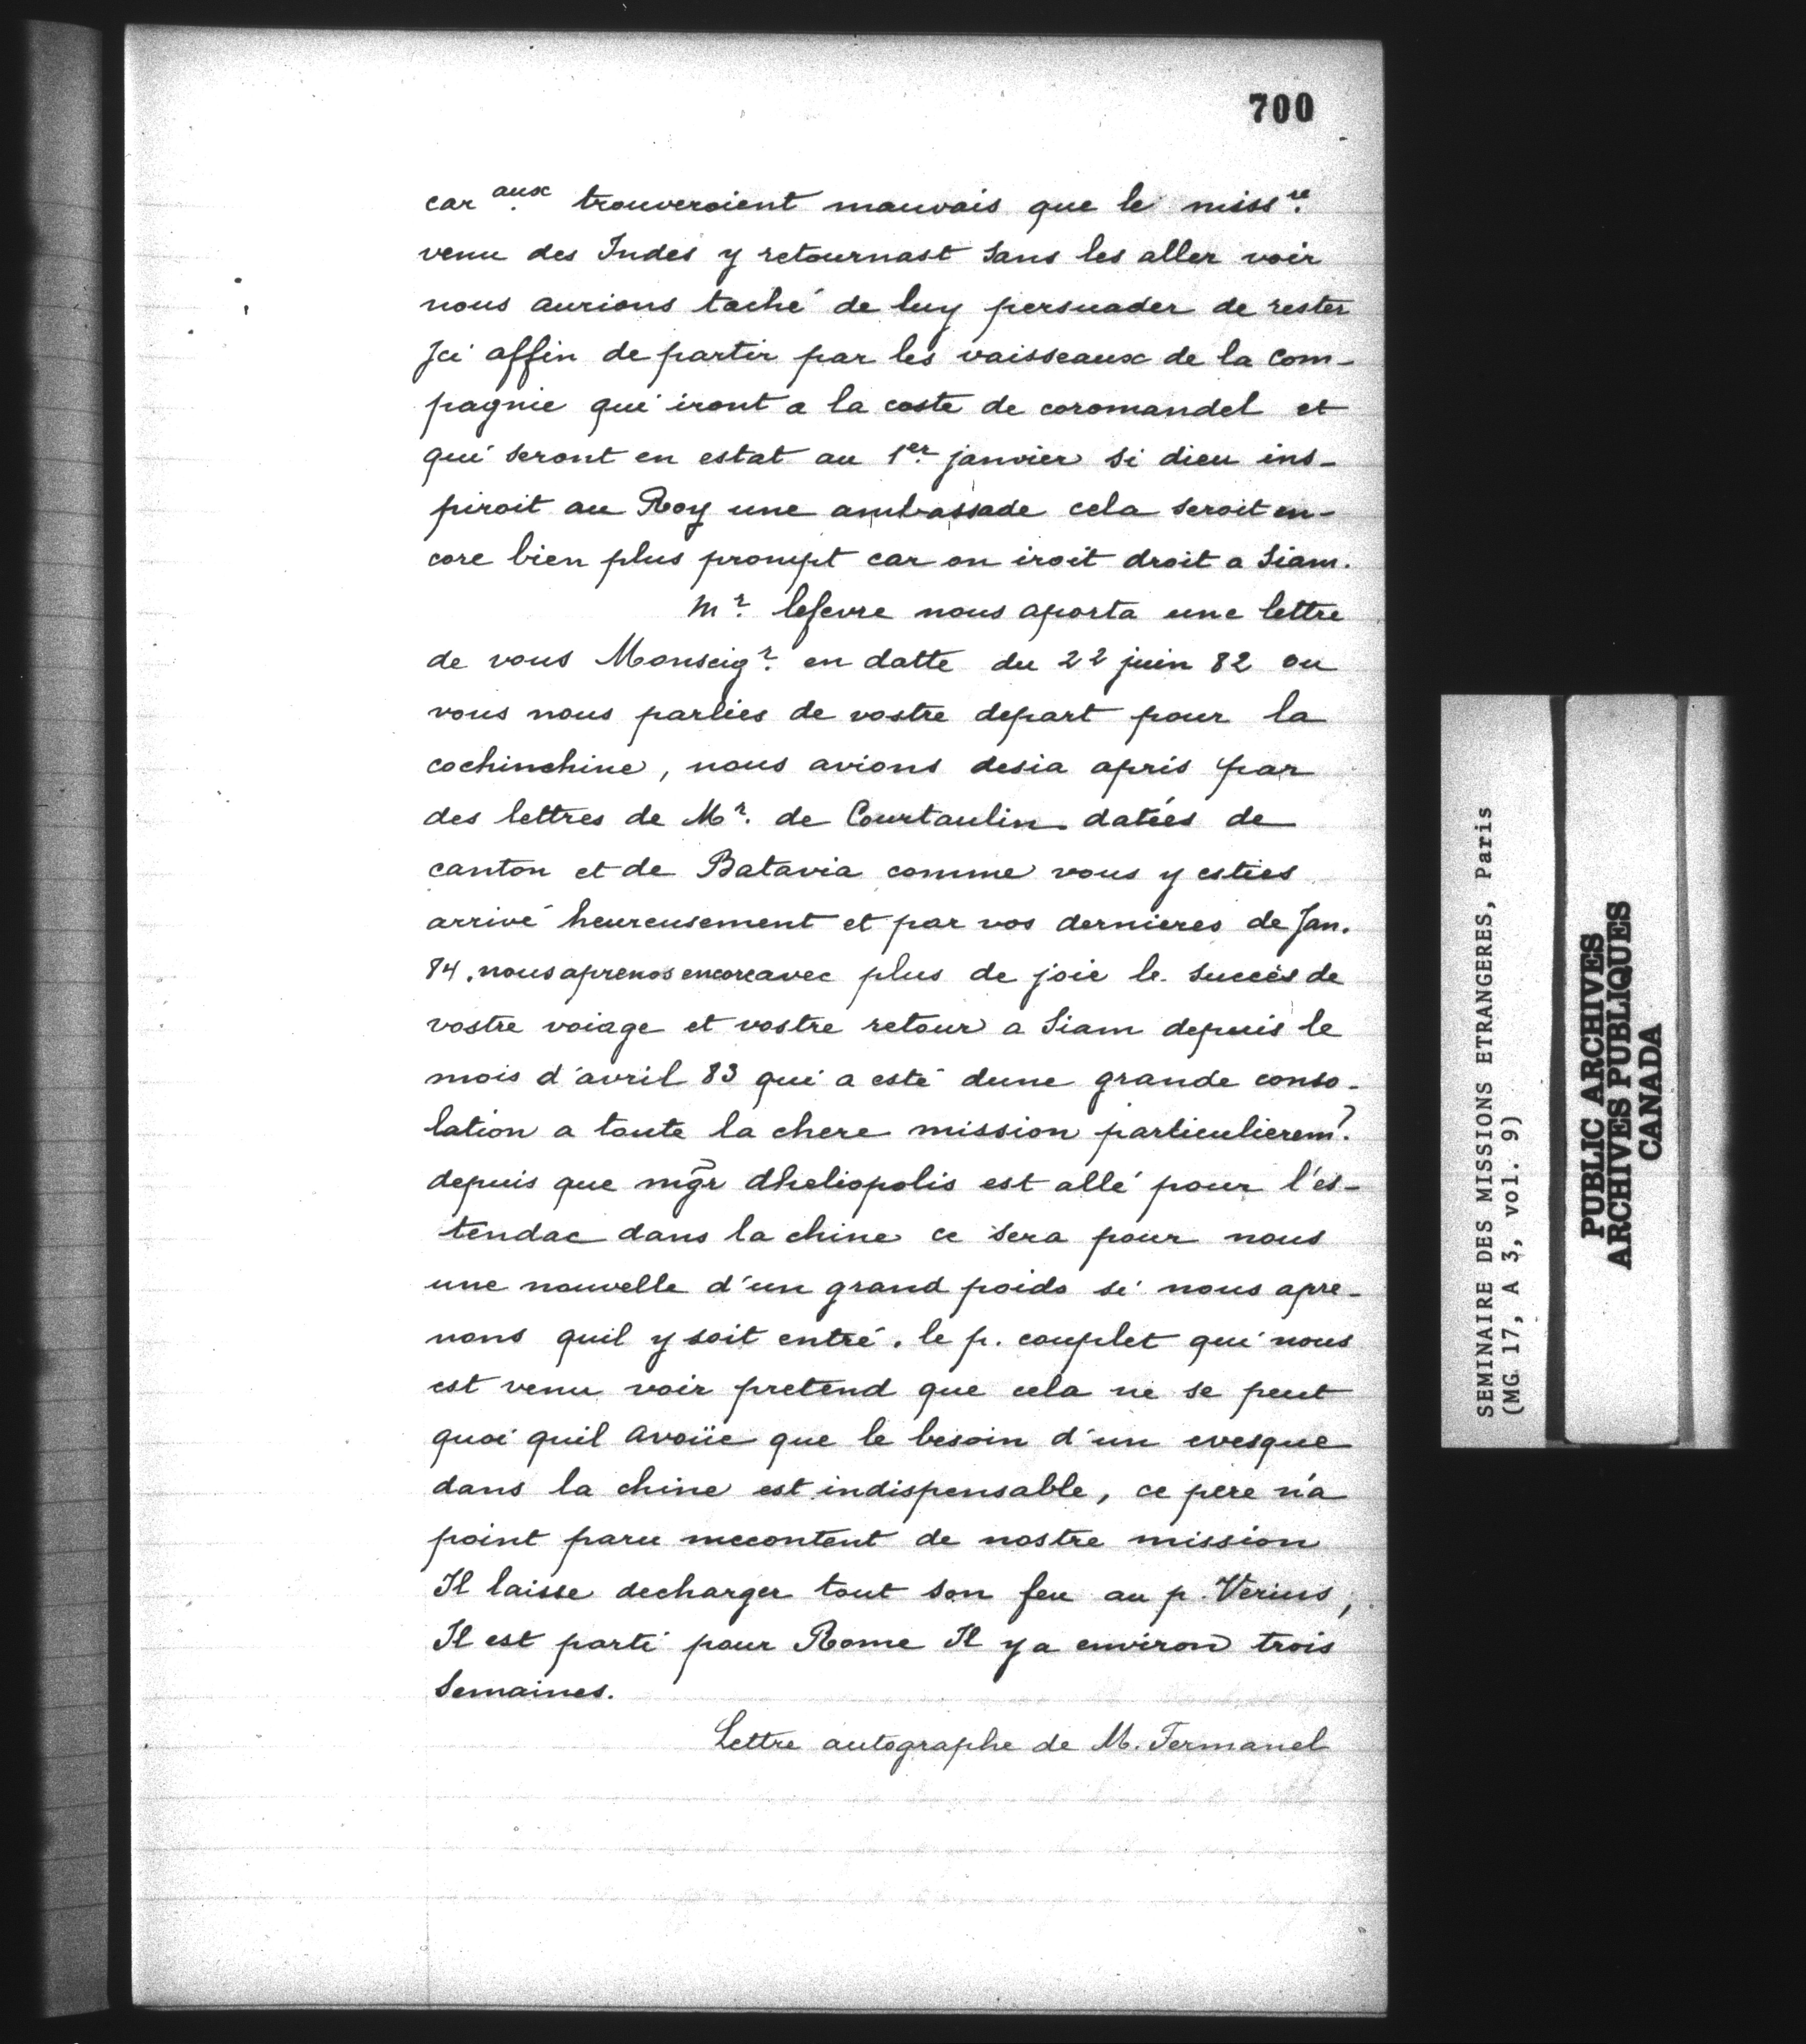 700
car aux. trouveroient mauvais que le miss re.
venu des Indes y retournast sans les aller voir
nous aurions taché de luy persuader de rester
Ici affin de partir par les vaisseaux de la com-
pagnie qui iront a la coste de coromandel et
qui seront en estat au 1er. janvier si dieu ins-
piroit au Roy une ambassade cela seroit en-
core bien plus prompt car on iroit droit a Siam.
Mr. lefevre nous aporta une lettre
de vous Monseigr. en datte du 22 juin 82 ou
vous nous parliés de vostre depart pour la
cochinchine, nous avions desia apris par
des lettres de Mr. de Courtaulin datées de
canton et de Batavia comme vous y esties
arrivé heureusement et par vos dernieres de Jan.
84. nous aprenos encore avec plus de joie le succés de
vostre voiage et vostre retour a Siam depuis le
mois d'avril 83 qui a esté dune grande conso-
lation a toute la chere mission particulieremt.
depuis que mgr dheliopolis est allé pour l'es-
tendac dans la chine ce sera pour nous
une nouvelle d'un grand poids si nous apre-
nons quil y soit entré. le p. couplet qui nous
est venu voir pretend que cela ne se peut
quoi quil avoüe que le besoin d'un evesque
dans la chine est indispensable, ce pere n'a
point paru mecontent de nostre mission
Il laisse decharger tout son feu au p. Verius,
Il est parti pour Rome Il y a environ trois
semaines.
Lettre autographe de M. Fermanel
SEMINAIRE DES MISSIONS ETRANGERES, Paris
(MG 17, A 3, vol. 9)
PUBLIC ARCHIVES
ARCHIVES PUBLIQUES
CANADA